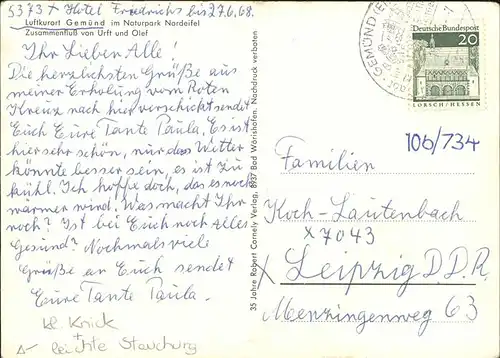 5373 + Hotel Friedrichs bis 27.6.68.
Luftkurort Gemünd im Naturpark Nordeifel
Zusammenfluß von Urft und Olef
Ihr Lieben Alle!
Die herzlichsten Grüße aus
meiner Erholung vom Roten
Kreuz nach hier verschickt sendet
Euch Eure Tante Paula. Es ist
hier sehr schön, nur das Wetter
könnte besser sein, es ist zu
kühl. Ich hoffe doch, das es noch
wärmer wird. Was macht Ihr
noch? Ist bei Euch noch Alles
Gesund? Nochmals viele
Grüße an Euch sendet
Eure Tante Paula.
kl. Knick
+
leichte Stauchung
35 Jahre Robert Cornely Verlag, 8937 Bad Wörishofen. Nachdruck verboten
GEMÜND (EIFEL)
Deutsche Bundespost
20
LORSCH/HESSEN
106/734
Familien
Koch-Lautenbach
x 7043
x Leipzig D.D.R.
Menzingenweg 63